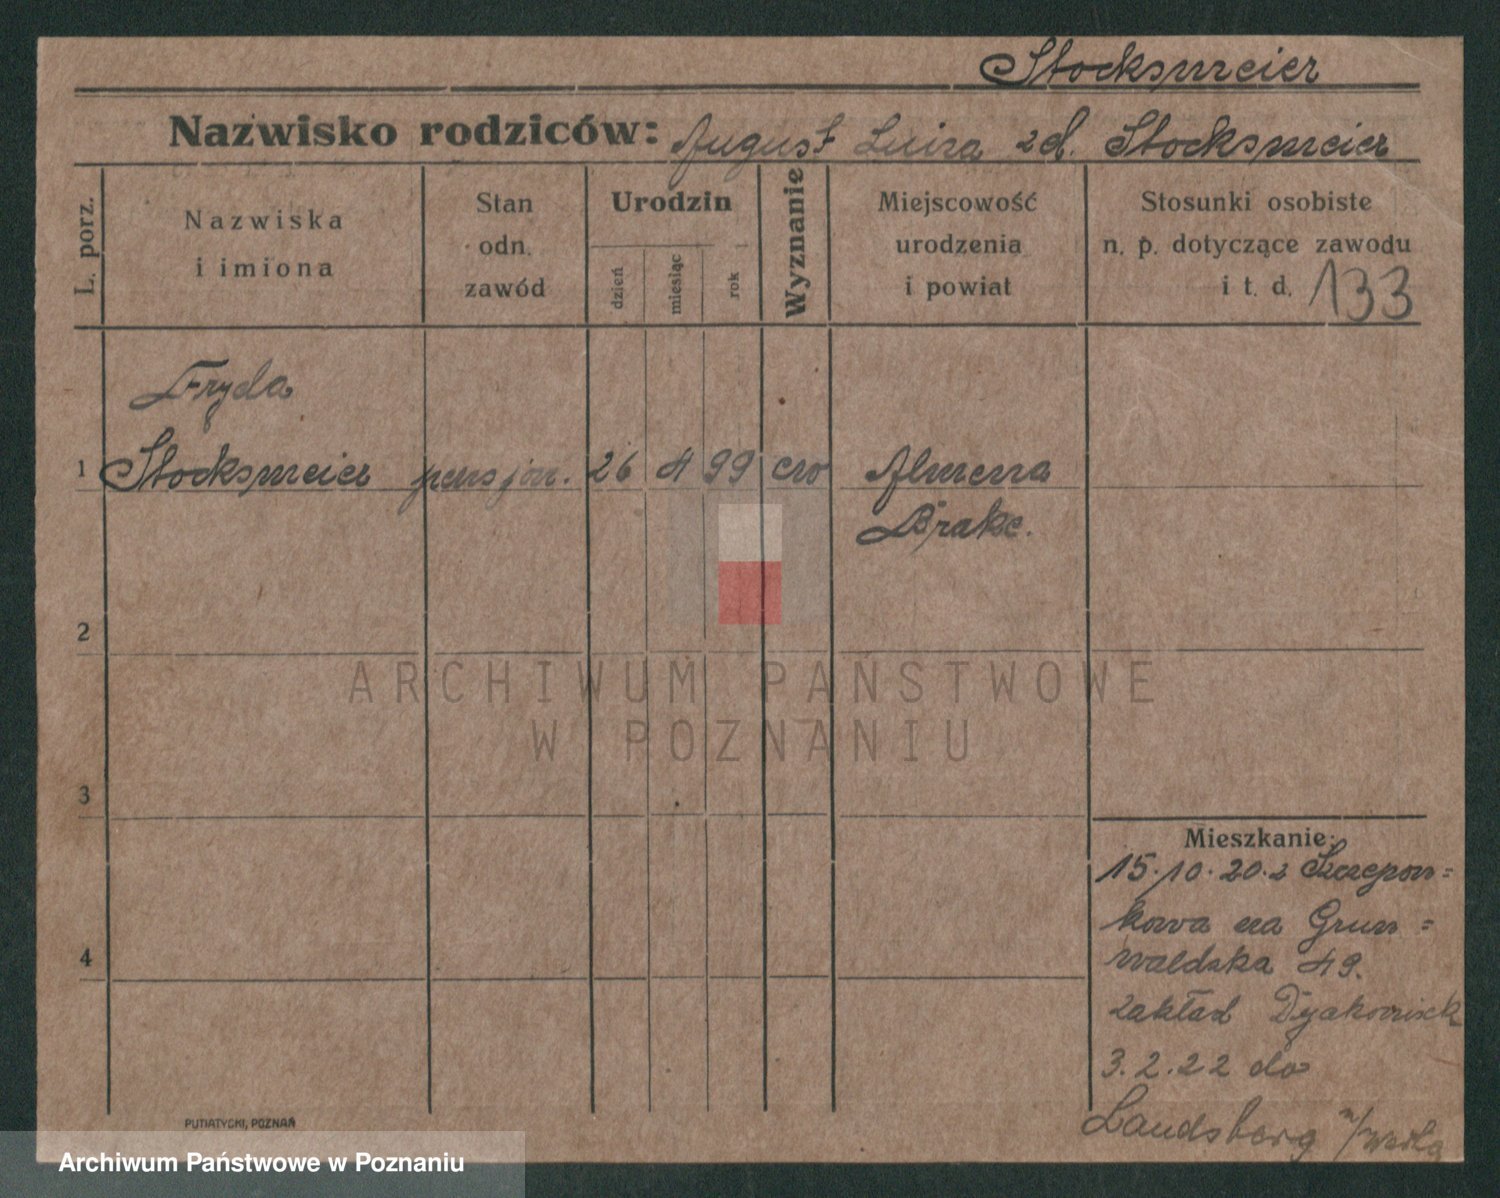 Stocksmeier
Nazwisko rodziców: August Luiza zd. Stocksmeier
L. porz.
Nazwiska
i imiona
Stan
odn.
zawód
Urodzin
dzień
miesiąc
rok
Wyznanie
Miejscowość
urodzenia
i powiat
Stosunki osobiste
n. p. dotyczące zawodu
i t. d. 133
Fryda
1 Stocksmeier pensjon. 26 4 99 ew Almena
Brake.
2
ARCHIWUM PAŃSTWOWE
W POZNANIU
3
Mieszkanie:
15.10.20. z Szczepon=
kowa na Grun=
waldzka 49.
4
zakład Dyakonisek
3.2.22 do
Landsberg n/Wartą
PUTIATYCKI, POZNAŃ
Archiwum Państwowe w Poznaniu